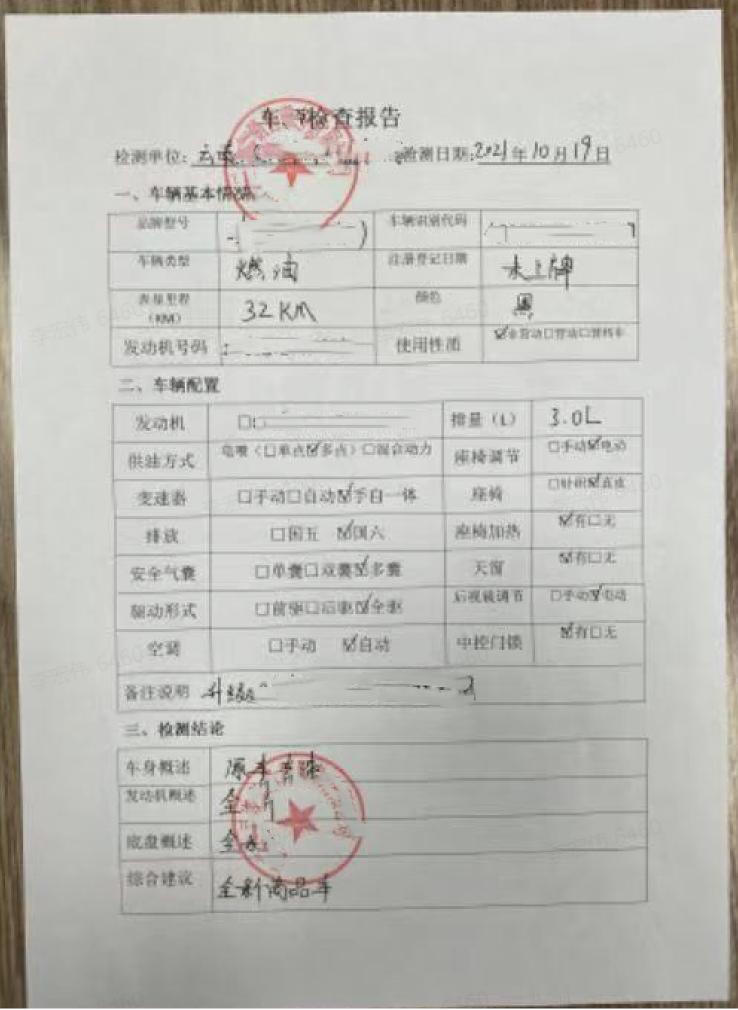 车辆检查报告
检测单位: 检测日期:2021年10月19日
一、车辆基本情况
品牌型号 车辆识别代码
车辆类型 燃油 注册登记日期 未上牌
表显里程(KM) 32KM 颜色 黑
发动机号码 使用性质 ☑非营动□营动□营转非
二、车辆配置
发动机 排量(L) 3.0L
供油方式 电喷(□单点☑多点)□混合动力 座椅调节 □手动☑电动
变速器 □手动□自动☑手自一体 座椅 □针织☑真皮
排放 □国五 ☑国六 座椅加热 ☑有□无
安全气囊 □单囊□双囊☑多囊 天窗 ☑有□无
驱动形式 □前驱□后驱☑全驱 后视镜调节 □手动☑电动
空调 □手动 ☑自动 中控门锁 ☑有□无
备注说明
三、检测结论
车身概述 原车
发动机概述 全新
底盘概述 全
综合建议 全新商品车